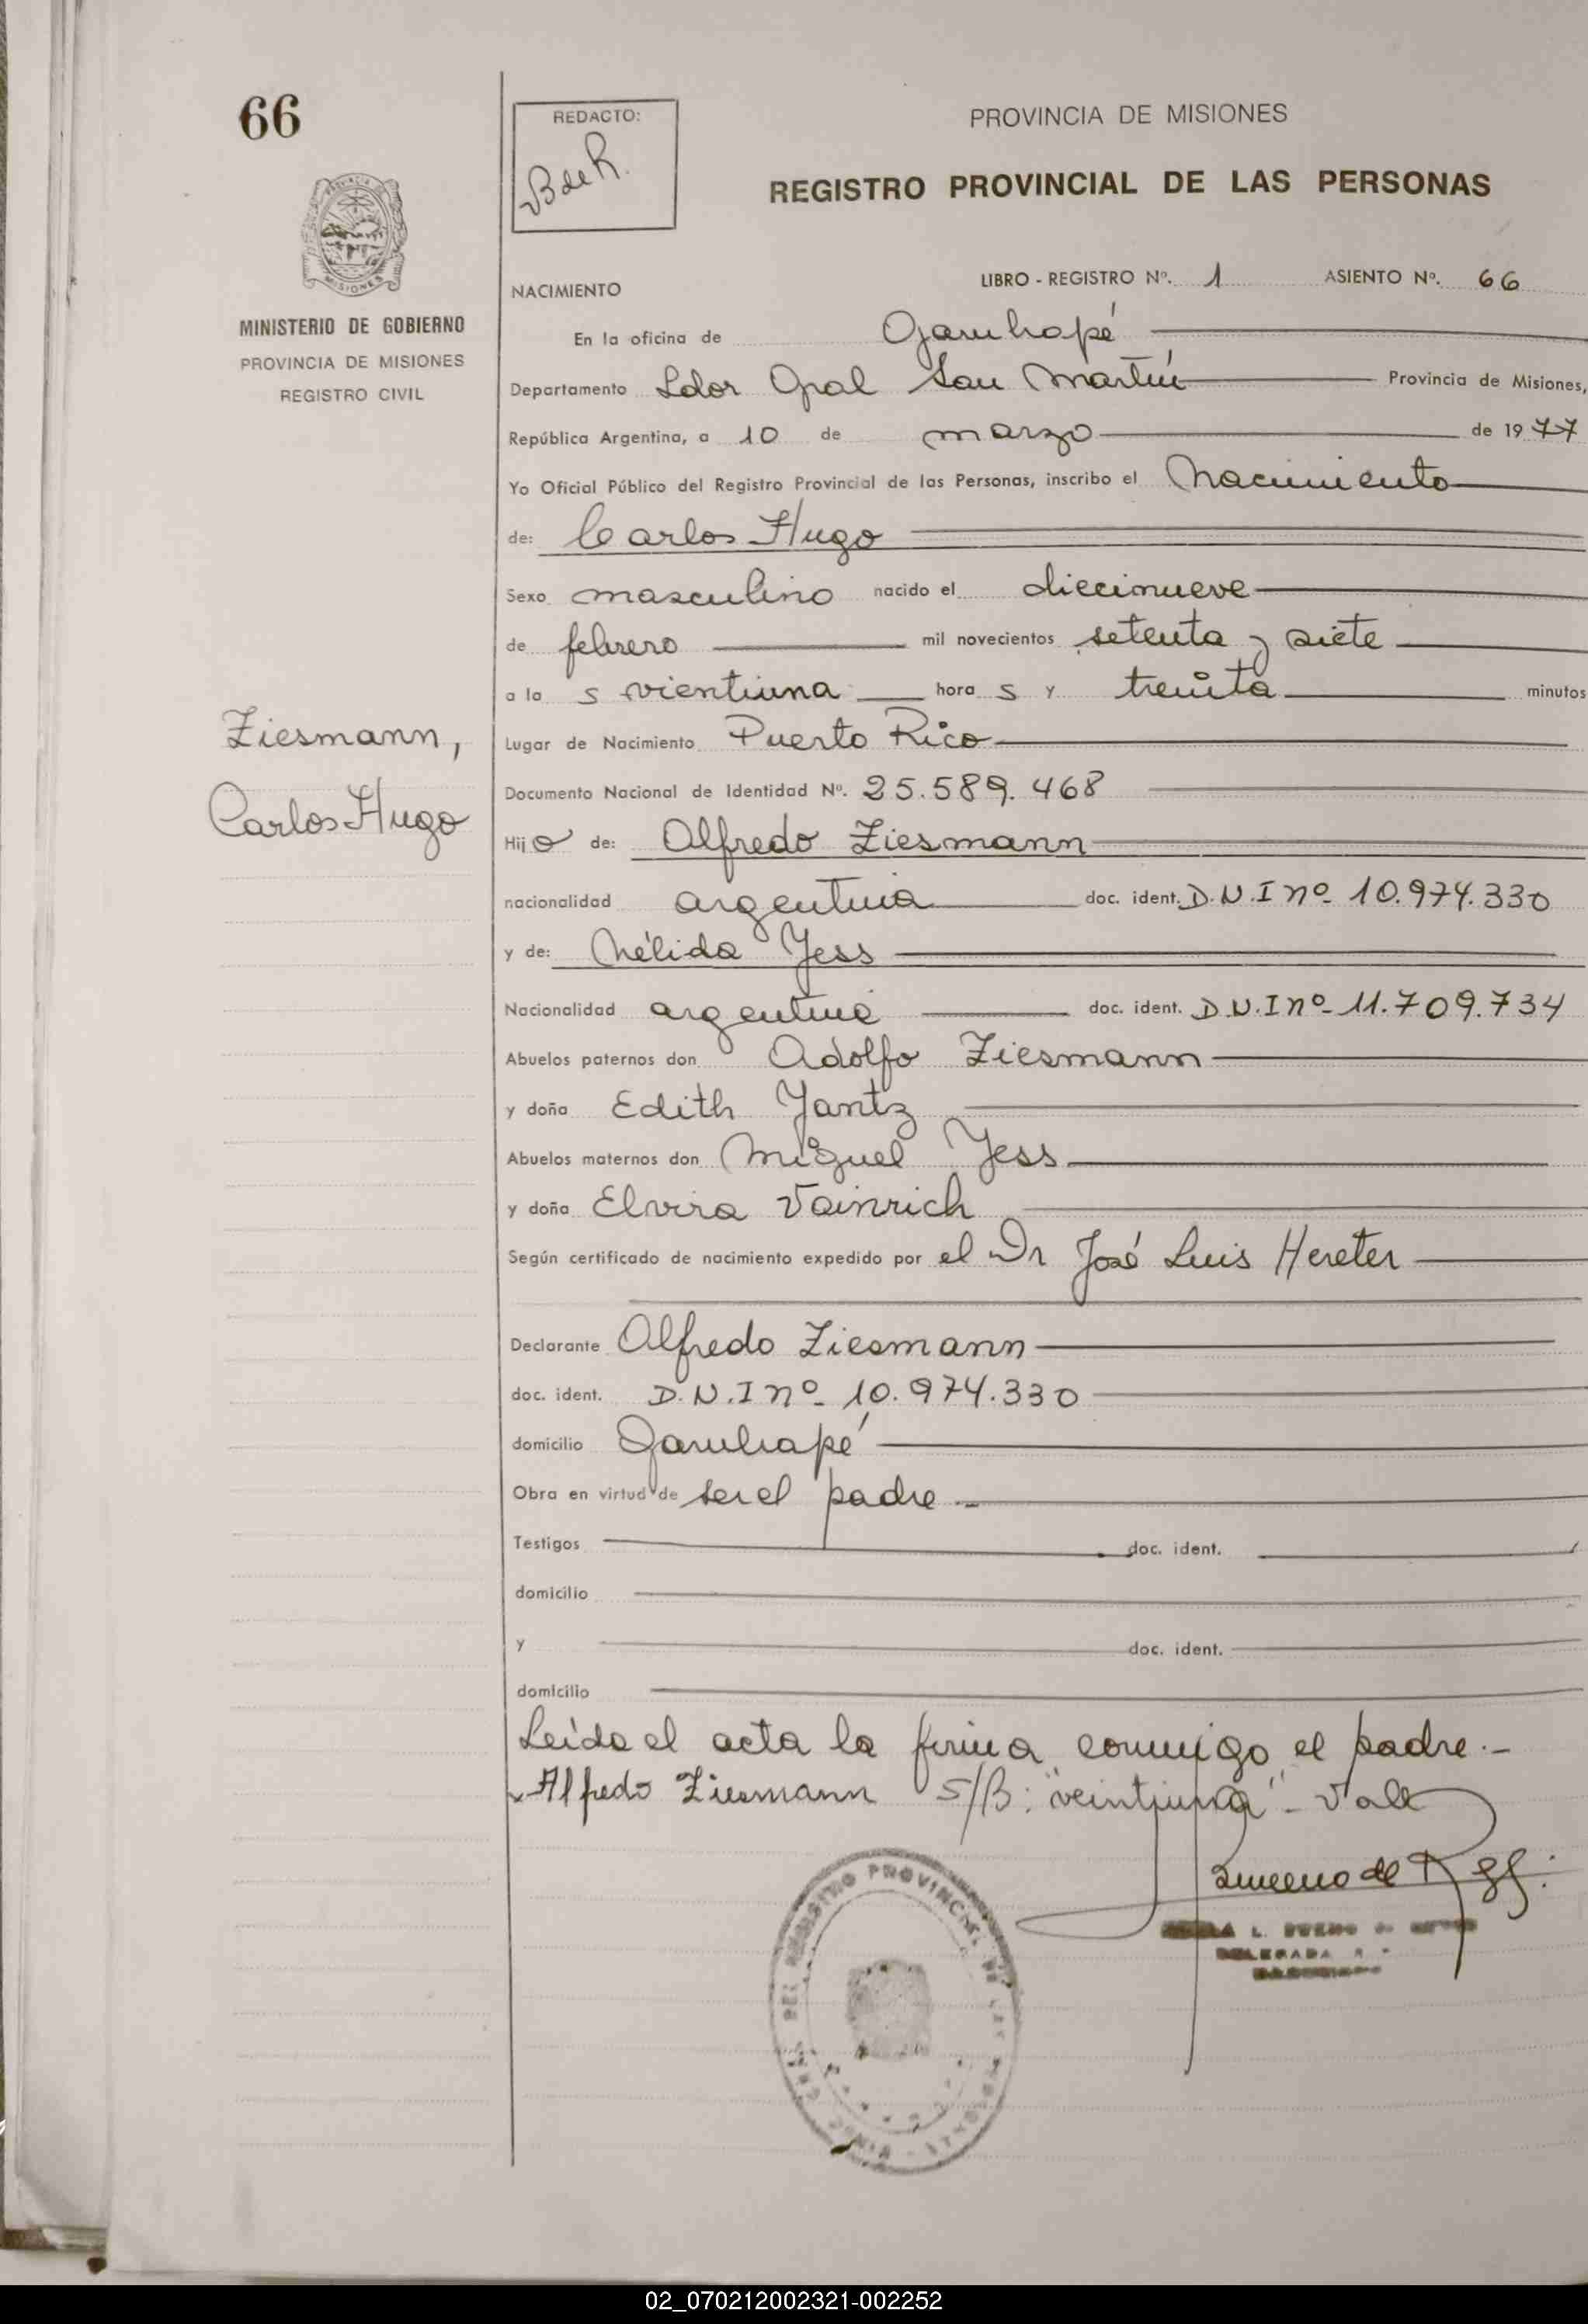 66
REDACTO:
BdeR.
PROVINCIA DE MISIONES
REGISTRO PROVINCIAL DE LAS PERSONAS
MISIONES
MINISTERIO DE GOBIERNO
PROVINCIA DE MISIONES
REGISTRO CIVIL
NACIMIENTO
LIBRO - REGISTRO Nº. 1 ASIENTO Nº. 66
En la oficina de Garuhapé
Departamento Ldor Gral San Martín Provincia de Misiones,
República Argentina, a 10 de marzo de 1977
Yo Oficial Público del Registro Provincial de las Personas, inscribo el Nacimiento
de: Carlos Hugo
Sexo masculino nacido el diecinueve
de febrero mil novecientos setenta y siete
a la s vientiuna hora s y treinta minutos
Ziesmann,
Carlos Hugo
Lugar de Nacimiento Puerto Rico
Documento Nacional de Identidad Nº. 25.589.468
Hijo de: Alfredo Ziesmann
nacionalidad argentina doc. ident. D.N.I nº 10.974.330
y de: Nélida Yess
Nacionalidad argentina doc. ident. D.N.I nº 11.709.734
Abuelos paternos don Adolfo Ziesmann
y doña Edith Yantz
Abuelos maternos don Miguel Yess
y doña Elvira Vainrich
Según certificado de nacimiento expedido por el Dr José Luis Hereter
Declarante Alfredo Ziesmann
doc. ident. D.N.I nº 10.974.330
domicilio Garuhapé
Obra en virtud de ser el padre
Testigos doc. ident.
domicilio
y doc. ident.
domicilio
Leída el acta la firma conmigo el padre.-
Alfredo Ziesmann S/B: "veintiuna" - Vale
DEL REGISTRO PROVINCIAL DE LAS
DELEGADA
02_070212002321-002252